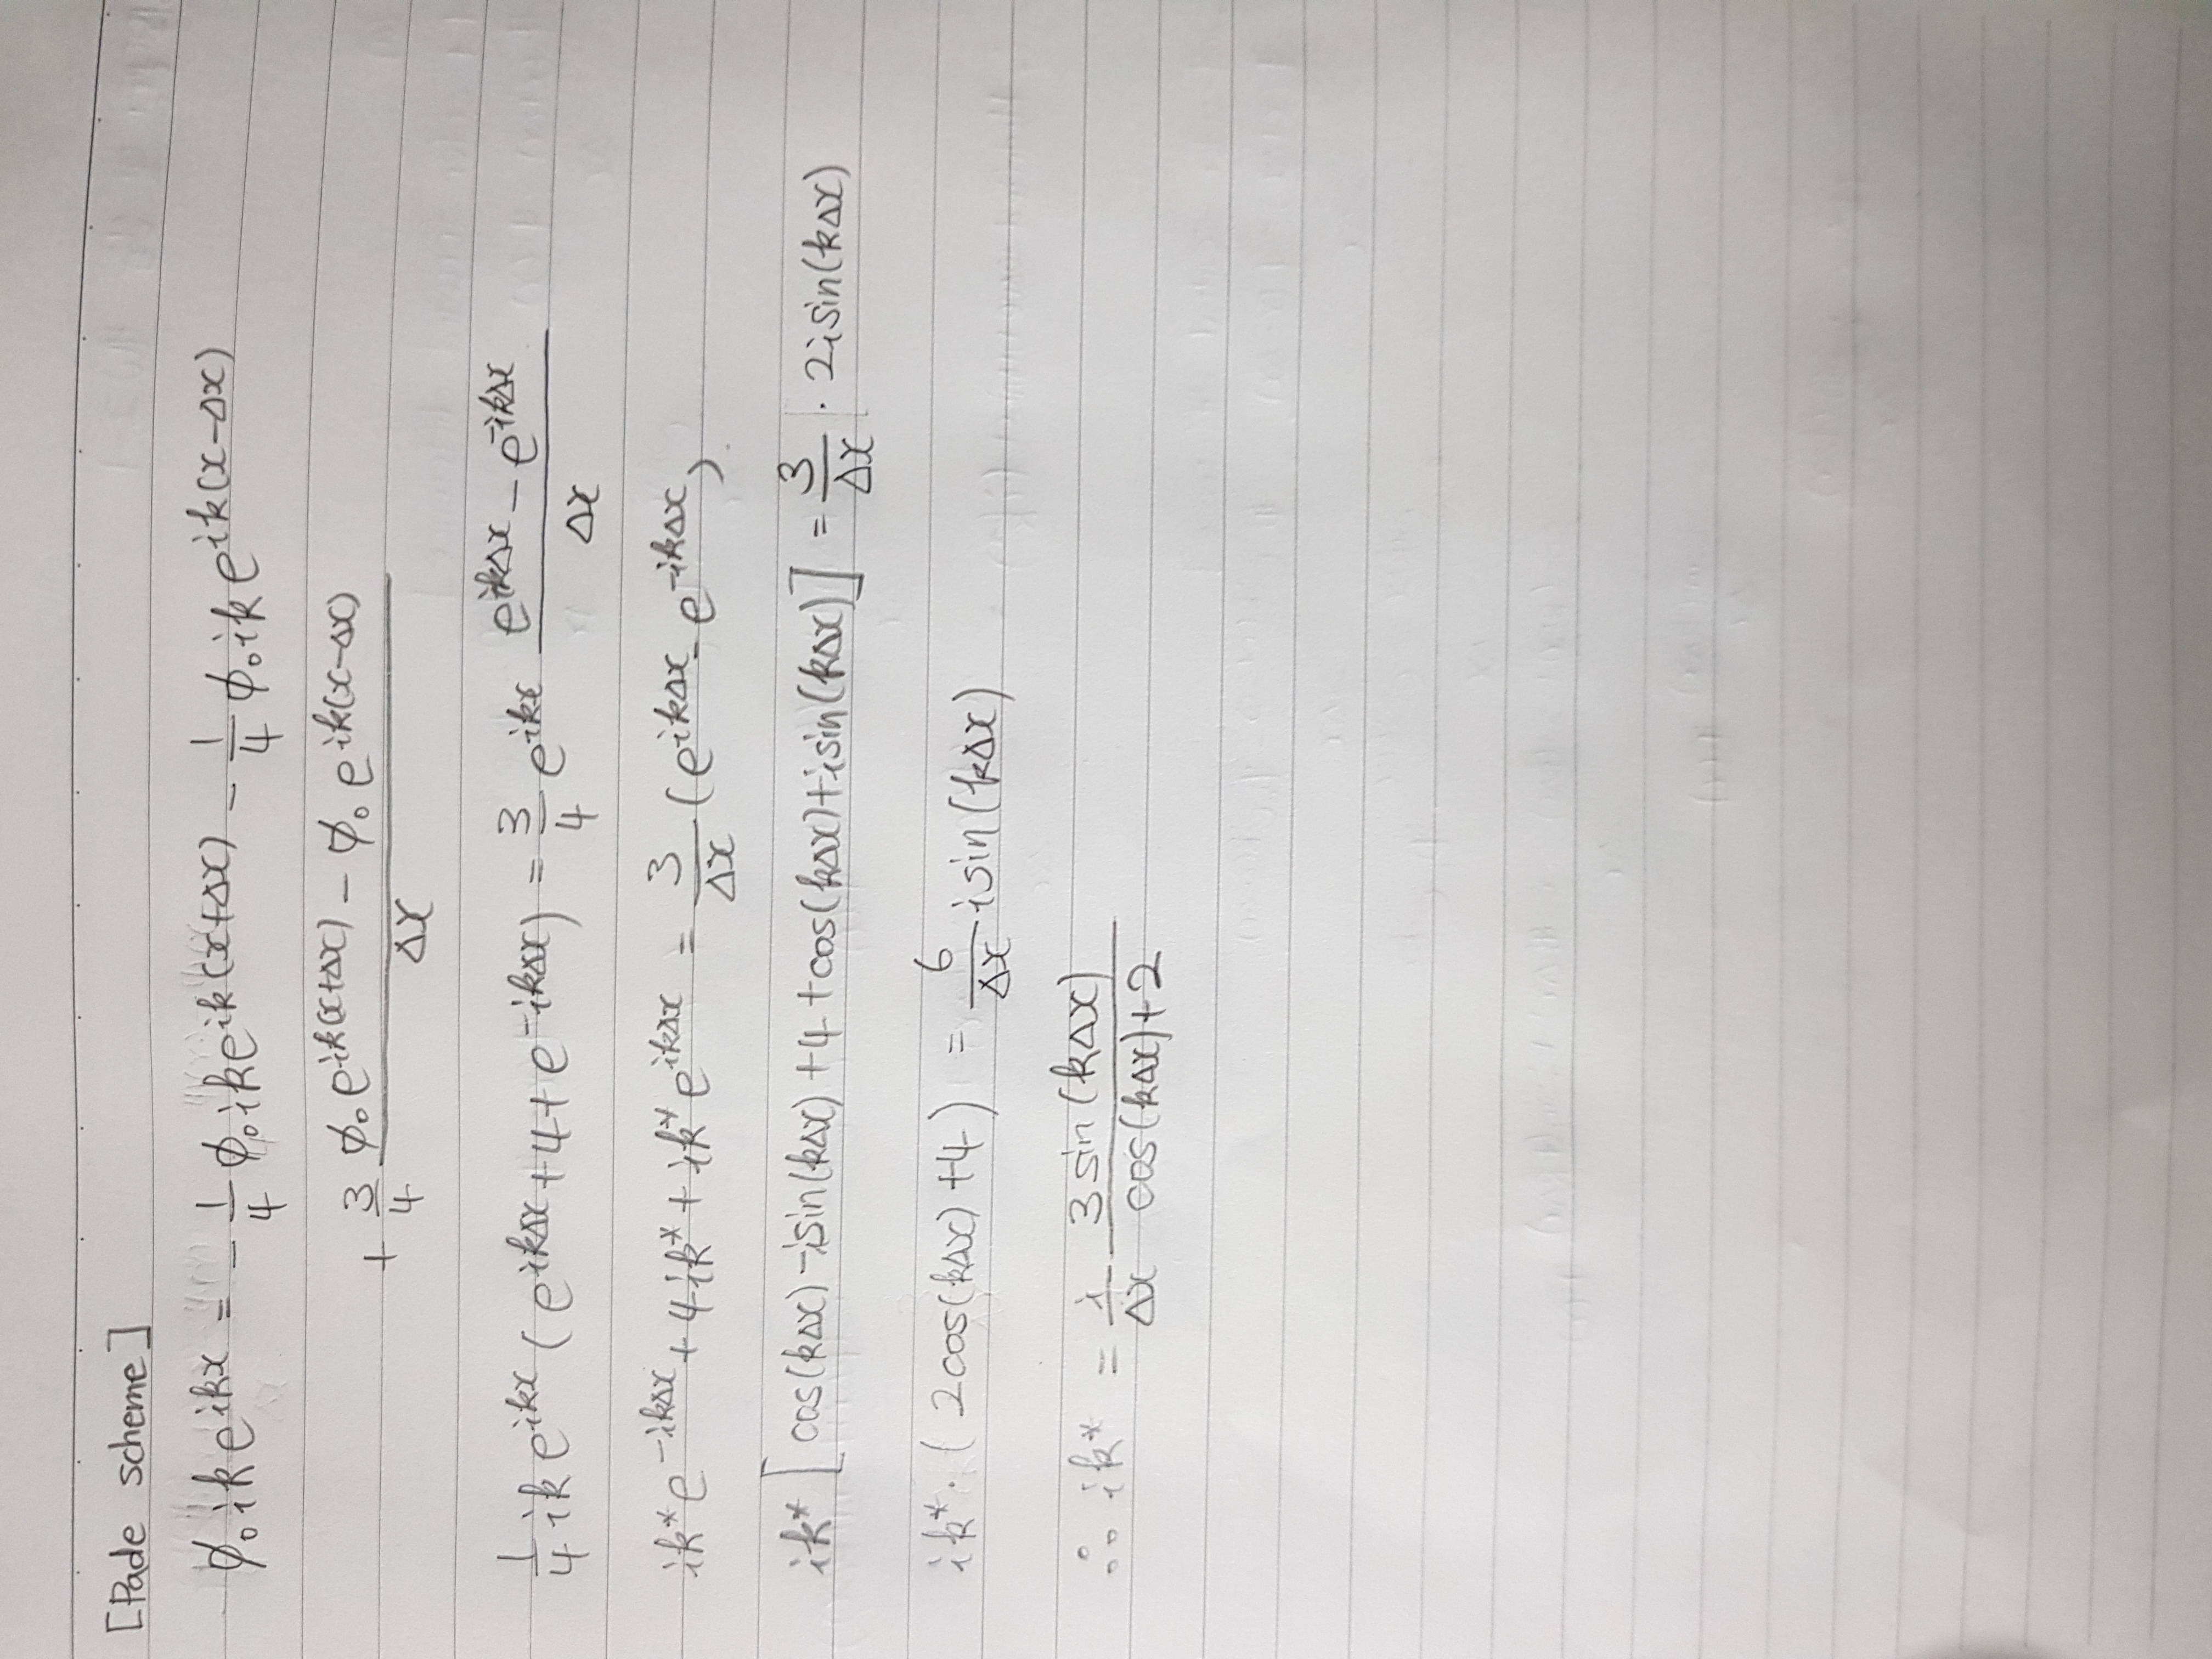 [Pade scheme]
ϕ₀ike^{ikx} = -\frac{1}{4}ϕ₀ike^{ik(x+Δx)} - \frac{1}{4}ϕ₀ike^{ik(x-Δx)}
+ \frac{3}{4} \frac{ϕ₀e^{ik(x+Δx)} - ϕ₀e^{ik(x-Δx)}}{Δx}
\frac{1}{4}ike^{ikx}(e^{ikΔx}+4+e^{-ikΔx}) = \frac{3}{4}e^{ikx} \frac{e^{ikΔx}-e^{-ikΔx}}{Δx}
ik*e^{-ikΔx}+4ik*+ik*e^{ikΔx} = \frac{3}{Δx}(e^{ikΔx}-e^{-ikΔx})
ik*[cos(kΔx)-isin(kΔx)+4+cos(kΔx)+isin(kΔx)] = \frac{3}{Δx}·2isin(kΔx)
ik*·(2cos(kΔx)+4) = \frac{6}{Δx}isin(kΔx)
∴ ik* = \frac{i}{Δx} \frac{3sin(kΔx)}{cos(kΔx)+2}